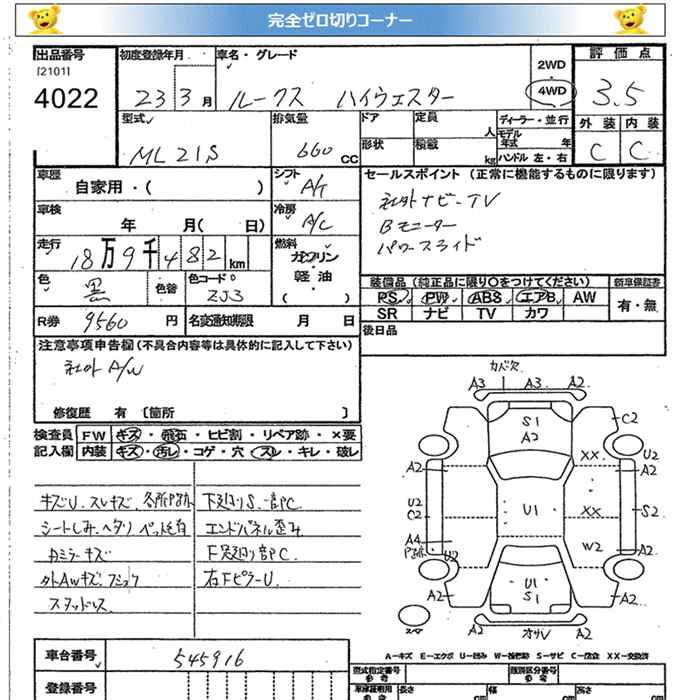 完全ゼロ切りコーナー
出品番号 初度登録年月 車名・グレード 2WD 評価点
[2101]
4022 23 3月 ルークス ハイウェスター 4WD 3.5
型式 排気量 ドア 定員 人 ディーラー・並行 外装 内装
モデル年式 年
ML21S 660 CC 形状 積載 kg ハンドル 左・右 C C
車歴 自家用・( ) シフト A/T セールスポイント (正常に機能するものに限ります)
社外ナビ-TV
車検 年 月( 日) 冷房 A/C Bモニター
パワースライド
走行 18万9千482km 燃料 ガソリン
軽油
( )
色 黒 色替 色コードNo ZJ3
装備品 (純正品に限り○をつけてください) 新車保証書
PS PW ABS エアB AW 有・無
SR ナビ TV カワ
R券 9560 円 名変通知期限 月 日 後日品
注意事項申告欄 (不具合内容等は具体的に記入して下さい)
社外 A/W
修復歴 有 〔箇所 〕
検査員 FW キズ・飛石・ヒビ割・リペア跡・×要
記入欄 内装 キズ・汚レ・コゲ・穴・スレ・キレ・破レ
キズU.スレキズ.各所P跡 下廻りS.一部PC
シートしみ.ヘタリ エンドパネル歪み
カミラーキズ F足廻り一部PC
外AWキズ.フショク 右FピラーU.
スタッドレス
カバ欠
A3 A3 A2
S1
A2
C2
XX
A2 U2
A2
U2
C2 U1 XX S2
A4 W2
P跡 U2 A2
U1
S1
A2 A2
A2 オサV A2
A-キズ E-エクボ U-凹み W-補修跡 S-サビ C-腐食 XX-交換済
車台番号 545916
型式指定番号 参考 類別区分番号 参考
登録番号 車庫証明用 参考 長さ cm 幅 cm 高さ cm